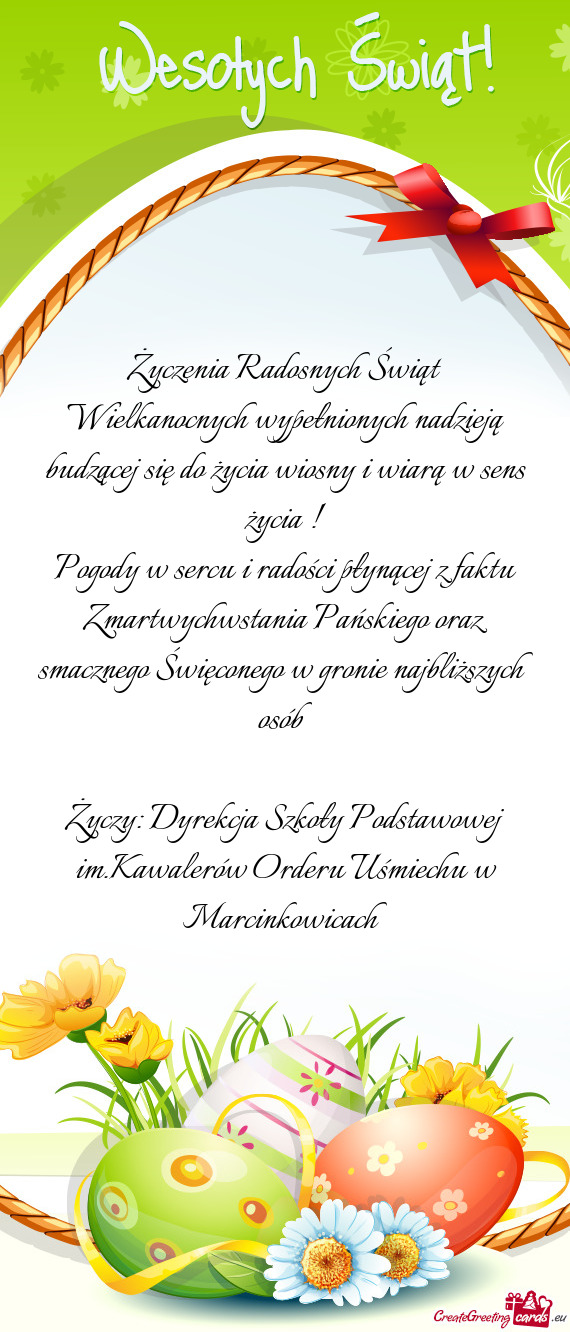 Wesołych Świąt!
Życzenia Radosnych Świąt
Wielkanocnych wypełnionych nadzieją
budzącej się do życia wiosny i wiarą w sens
życia !
Pogody w sercu i radości płynącej z faktu
Zmartwychwstania Pańskiego oraz
smacznego Święconego w gronie najbliższych
osób
Życzy: Dyrekcja Szkoły Podstawowej
im.Kawalerów Orderu Uśmiechu w
Marcinkowicach
CreateGreeting cards .eu